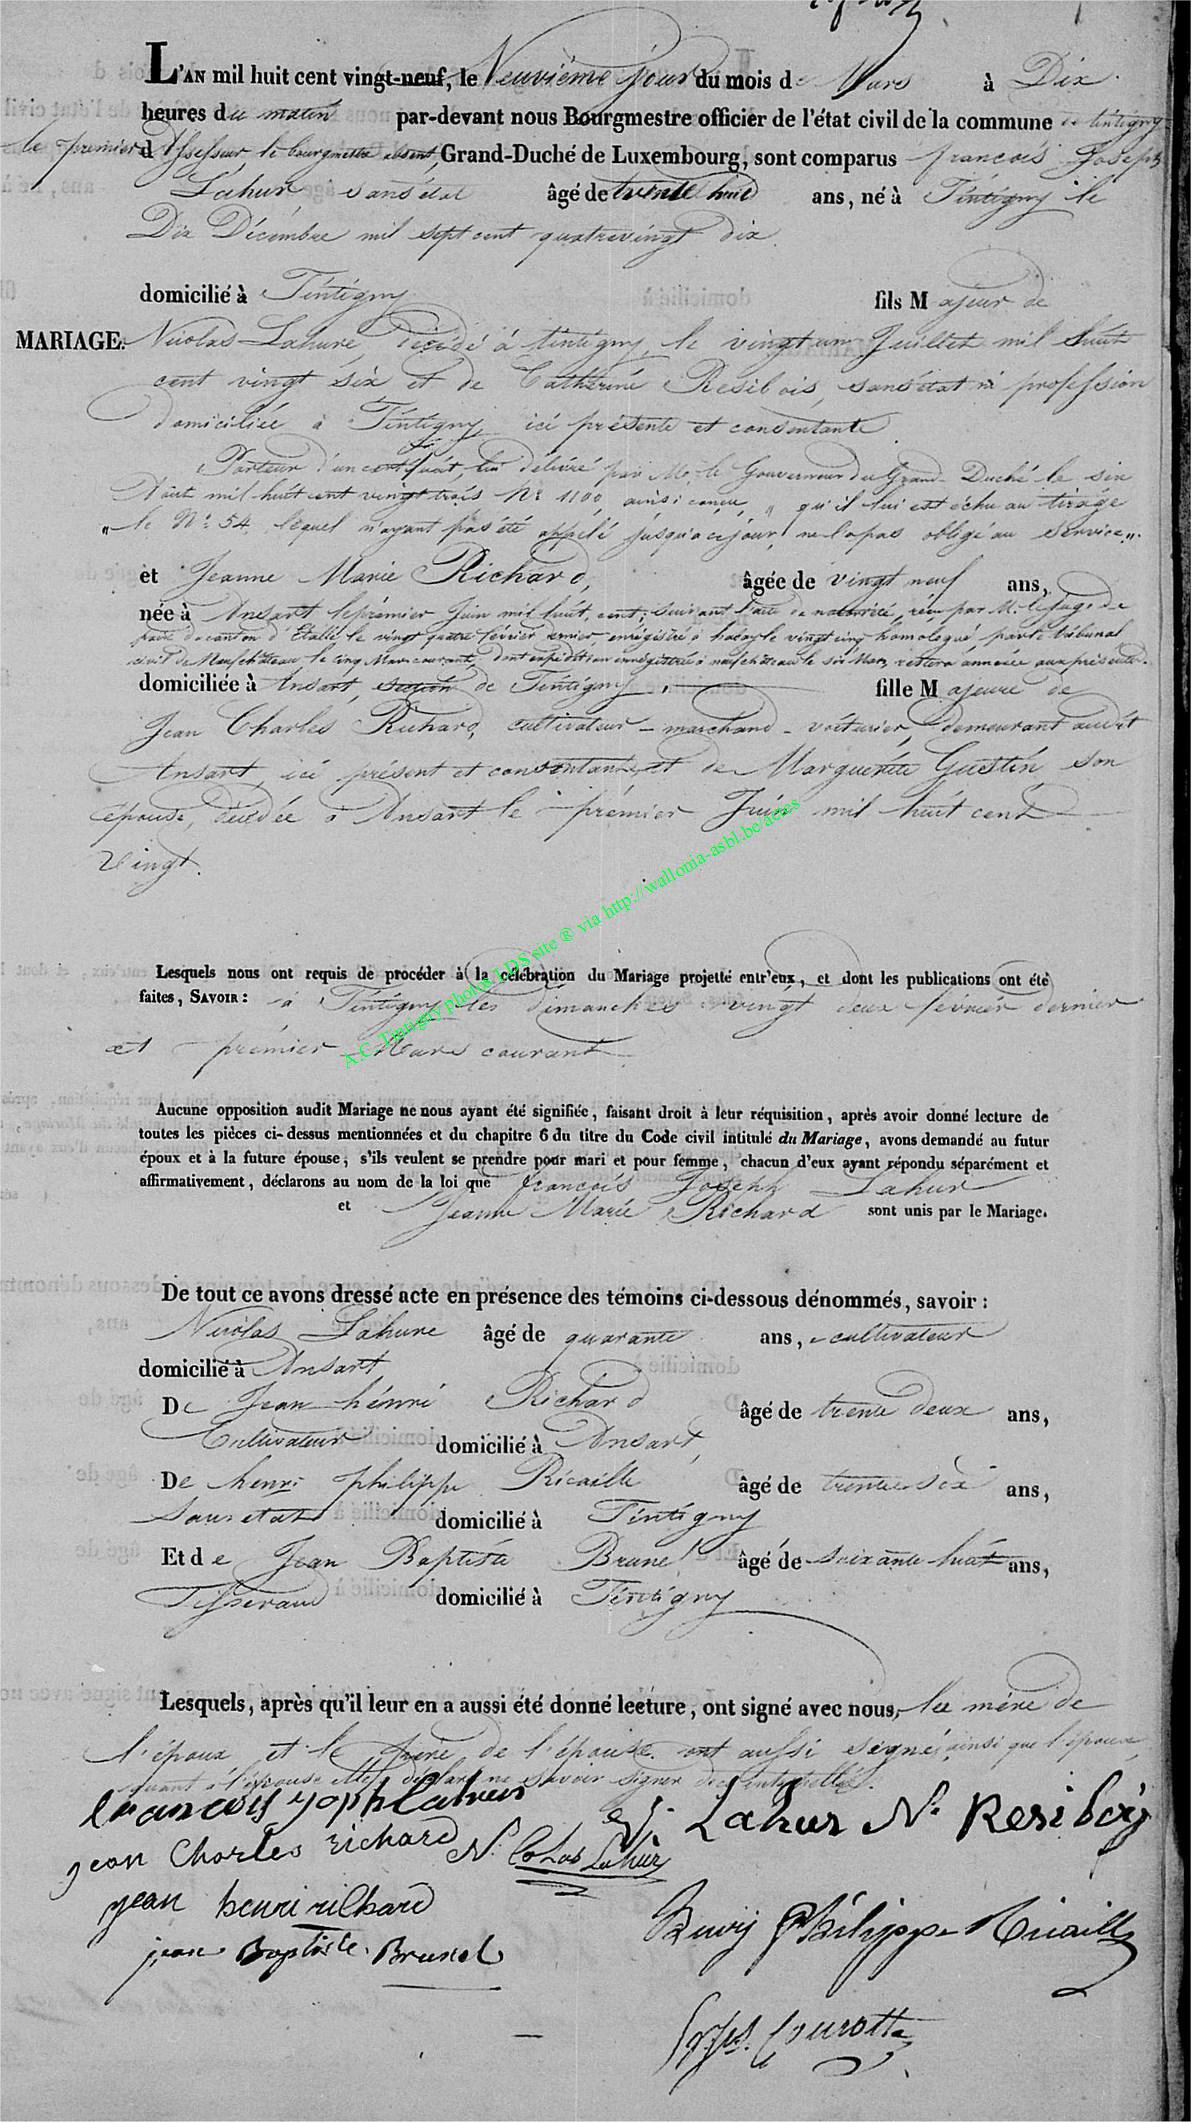 L'AN mil huit cent vingt-neuf, le Neuvième jour du mois de Mars à Dix
heures du matin par-devant nous Bourgmestre officier de l'état civil de la commune de tintigny
le premier assesseur le bourgmestre absent Grand-Duché de Luxembourg, sont comparus françois Joseph
Lahur sans état âgé de trente huit ans, né à Tintigny le
Dix Décembre mil sept cent quatrevingt dix
domicilié à Tintigny fils Majeur de
MARIAGE. Nicolas Lahure, décédé à tintigny, le vingt un Juillet mil huit
cent vingt six et de Catherine Resibois, sans état ni profession
domiciliée à Tintigny ici présente et consentante
Porteur d'un certificat, lui délivré par Mr. le Gouverneur du Grand-Duché le six
Août mil huit cent vingt trois Nr 1100, ainsi conçu, " qu'il lui est échu au tirage
" le No. 54, lequel n'ayant pas été appelé jusqu'a ce jour, ne l'a pas obligé au service ".
et Jeanne Marie Richard, âgée de vingt neuf ans,
née à Ansart le prémier Juin mil huit cent; suivant l'acte de notoriété, réçu par M. le Juge de
paix du canton d'Etalle le vingt quatre février dernier, enregistré à le vingt cinq homologué par le tribunal
civil de Neufchateau, le cinq Mars courant, dont expédition enregistrée à neufchateau le six Mars, restera annexée aux présentes.
domiciliée à Ansart, section de Tintigny, fille Majeure de
Jean Charles Richard, cultivateur - marchand - voiturier, demeurant audit
Ansart, ici présent et consentant, et de Marguerite Guestin son
épouse, décédée à Ansart le prémier Juin mil huit cent
vingt.
A.C. Tintigny photos LDS site ® via http://wallonia-asbl.be/actes
Lesquels nous ont requis de procéder à la célébration du Mariage projetté entr'eux, et dont les publications ont été
faites, SAVOIR : à Tintigny les dimanches vingt deux février dernier
et prémier Mars courant
Aucune opposition audit Mariage ne nous ayant été signifiée, faisant droit à leur réquisition, après avoir donné lecture de
toutes les pièces ci-dessus mentionnées et du chapitre 6 du titre du Code civil intitulé du Mariage, avons demandé au futur
époux et à la future épouse, s'ils veulent se prendre pour mari et pour femme, chacun d'eux ayant répondu séparément et
affirmativement, déclarons au nom de la loi que françois Joseph Lahur
et Jeanne Marie Richard sont unis par le Mariage.
De tout ce avons dressé acte en présence des témoins ci-dessous dénommés, savoir :
Nicolas Lahure âgé de quarante ans, cultivateur
domicilié à Ansart
De Jean hénri Richard âgé de trente deux ans,
Cultivateur domicilié à Ansart,
De henri philippe Ricaille âgé de trente six ans,
Sans état domicilié à Tintigny
Et de Jean Baptiste Brunel âgé de soixante huit ans,
Tisserand domicilié à Tintigny
Lesquels, après qu'il leur en a aussi été donné lecture, ont signé avec nous, la mère de
l'époux et le père de l'épouse ont aussi signé, ainsi que l'époux,
quant à l'épouse elle déclare ne savoir signer
francois joph Lahur Lahur N. Resiboy
jean Charles richard N. Colas Lahur
jean henri richard Henry Philippe Ricaille
jean Baptiste Brunel
Courotte